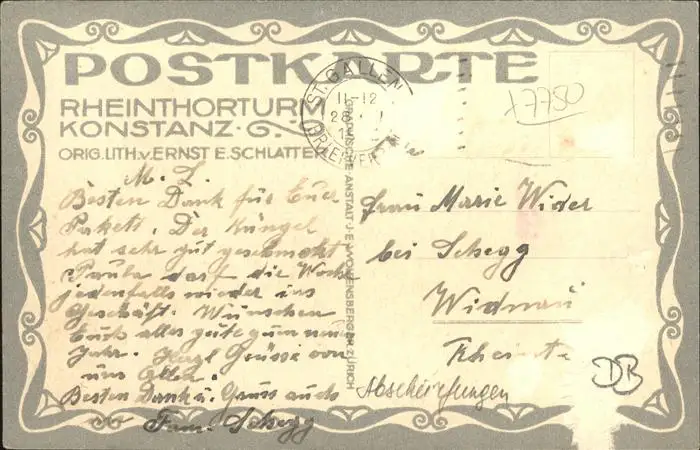 POSTKARTE
RHEINTHORTURM
KONSTANZ·G.
ORIG. LITH. v. ERNST E. SCHLATTER
ST. GALLEN
11-12
28
BRIEFVER
x7750
GRAPHISCHE ANSTALT J.E. WOLFENSBERGER ZÜRICH
M. L.
Besten Dank für Euer
Paket. Der Küngel
hat sehr gut geschmekt
Paula darf die Woche
jedenfalls wieder ins
Geschäft. Wünschen
Euch alles gute zum neuen
Jahr. Herzl Grüsse von
uns Allen.
Besten Dank u. Gruss auch
Fam. Schegg
Frau Marie Wider
bei Schegg
Widnau
Abschürfungen
DB